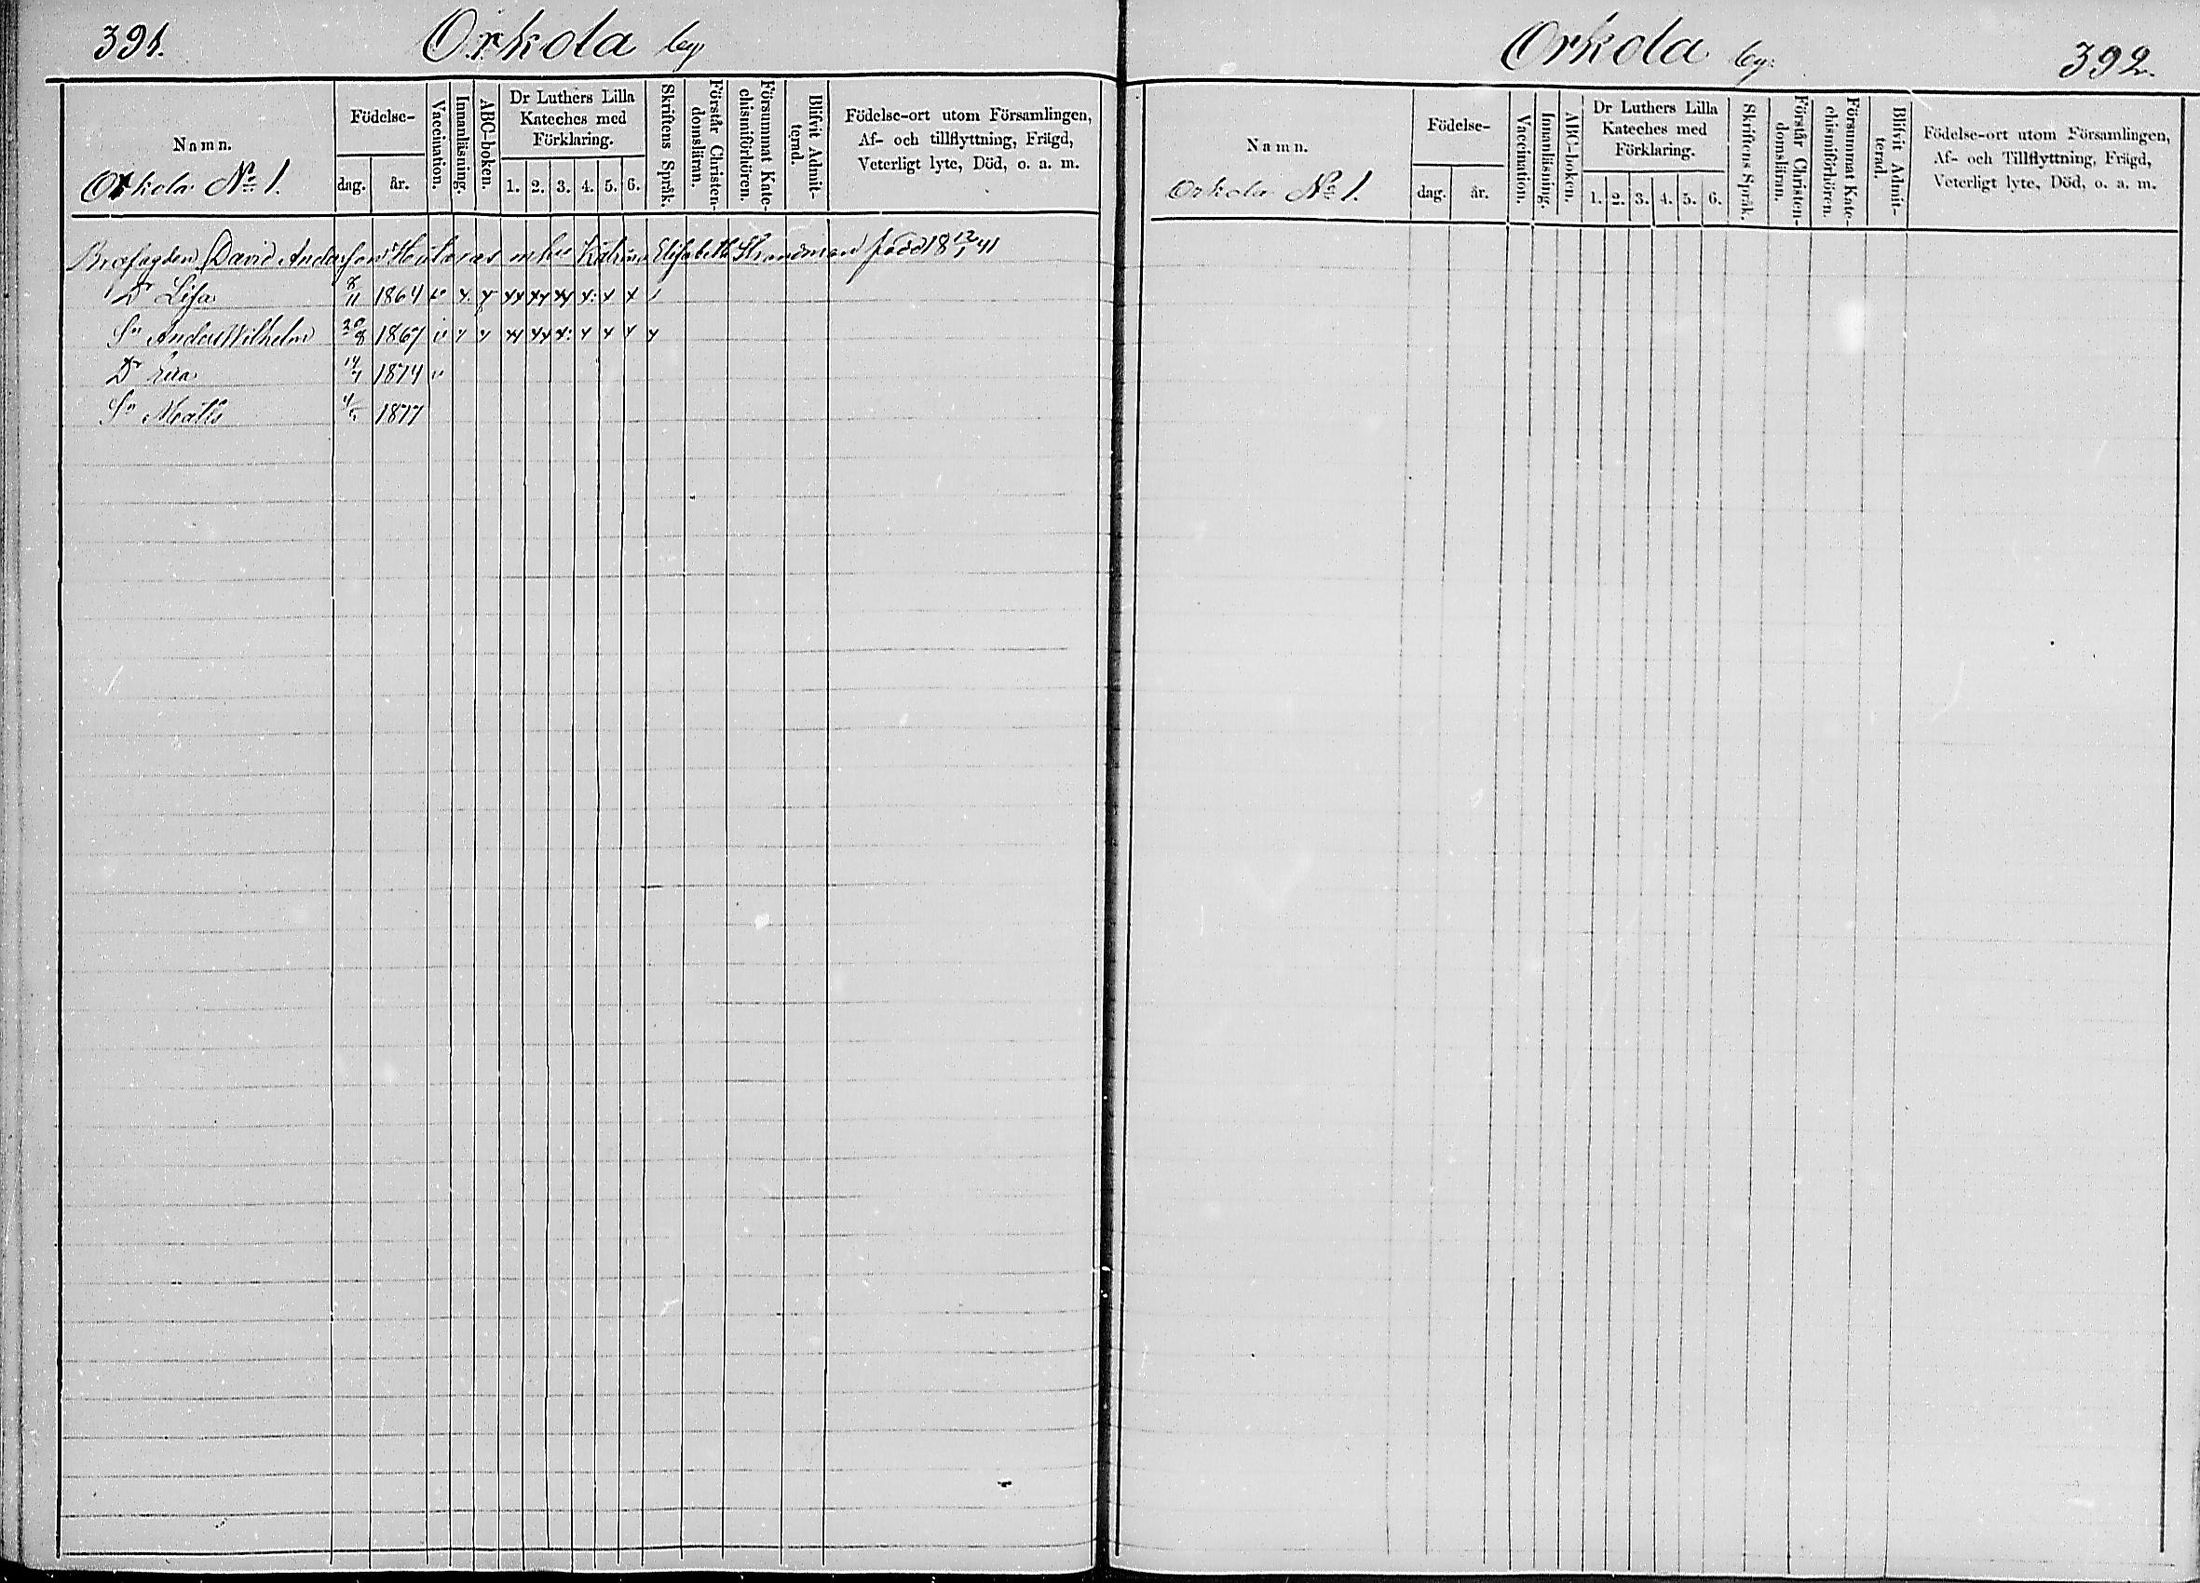 391. Orkola by
Namn.
Orkola No 1.
Födelse-
dag. år.
Vaccination.
Innanläsning.
ABC-boken.
Dr Luthers Lilla
Kateches med
Förklaring.
1. 2. 3. 4. 5. 6.
Skriftens Språk.
Förstår Christen-
domsläran.
Försummat Kate-
chismiförhören.
Blifvit Admit-
terad.
Födelse-ort utom Församlingen,
Af- och tillflyttning, Frägd,
Veterligt lyte, Död, o. a. m.
David Anders hu Elisabeth född 18 12/1 41
Dr Lisa 8/11 1864 v x x xx xx xx x: x x
Sn Anders Wilhelm 20/8 1867 v x x xx xx x: x x x x
Dr 14/7 1874 v
Sn Matts 1877
Orkola by: 392.
Namn.
Orkola No 1.
Födelse-
dag. år.
Vaccination.
Innanläsning.
ABC-boken.
Dr Luthers Lilla
Kateches med
Förklaring.
1. 2. 3. 4. 5. 6.
Skriftens Språk.
Förstår Christen-
domsläran.
Försummat Kate-
chismiförhören.
Blifvit Admit-
terad.
Födelse-ort utom Församlingen,
Af- och Tillflyttning, Frägd,
Veterligt lyte, Död, o. a. m.